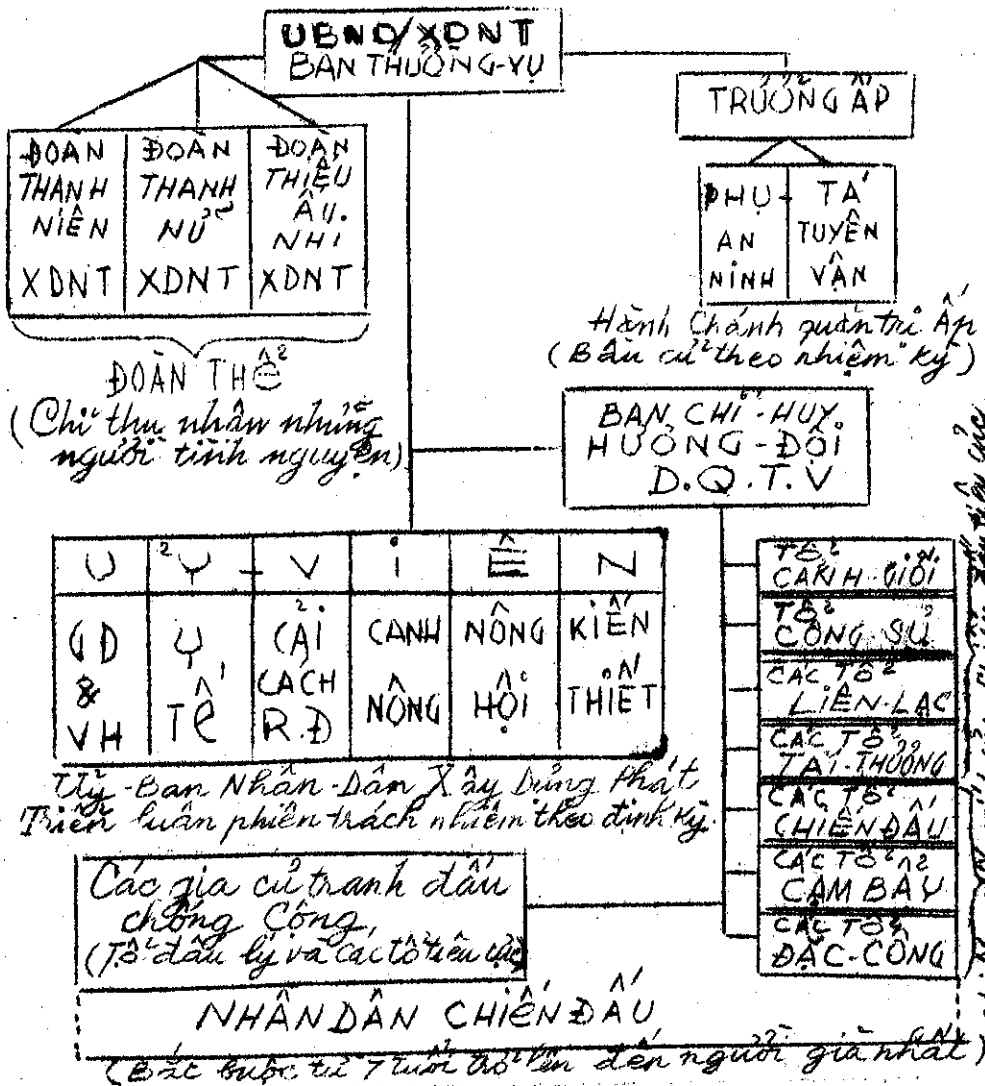 UBND/XDNT
BAN THƯỜNG-VỤ
TRƯỞNG ẤP
ĐOÀN THANH NIÊN XDNT
ĐOÀN THANH NỮ XDNT
ĐOÀN THIẾU ẤU. NHI XDNT
PHỤ - TÁ
AN NINH
TUYÊN VẬN
Hành Chánh quản trị Ấp
(Bầu cử theo nhiệm kỳ)
ĐOÀN THỂ
(Chỉ thu nhân những
người tình nguyện)
BAN CHỈ-HUY
HƯƠNG-ĐỘI
D.Q.T.V
ỦY-VIÊN
GD & VH
Y TẾ
CẢI CÁCH R.Đ
CANH NÔNG
NÔNG HỘI
KIẾN THIẾT
Ủy-Ban Nhân-Dân Xây Dựng Phát
Triển luân phiên trách nhiệm theo định kỳ.
TỔ
CANH-GIỚI
TỔ
CÔNG SỰ
CÁC TỔ
LIÊN-LẠC
CÁC TỔ
TẢI-THƯƠNG
CÁC TỔ
CHIẾN ĐẤU
CÁC TỔ
CẠM BẪY
CÁC TỔ
ĐẶC-CÔNG
Các gia cư tranh đấu
chống Cộng,
(Tổ đấu lý và các tổ tiêu cực)
NHÂN DÂN CHIẾN ĐẤU
(Bắt buộc từ 7 tuổi trở lên đến người già nhất)